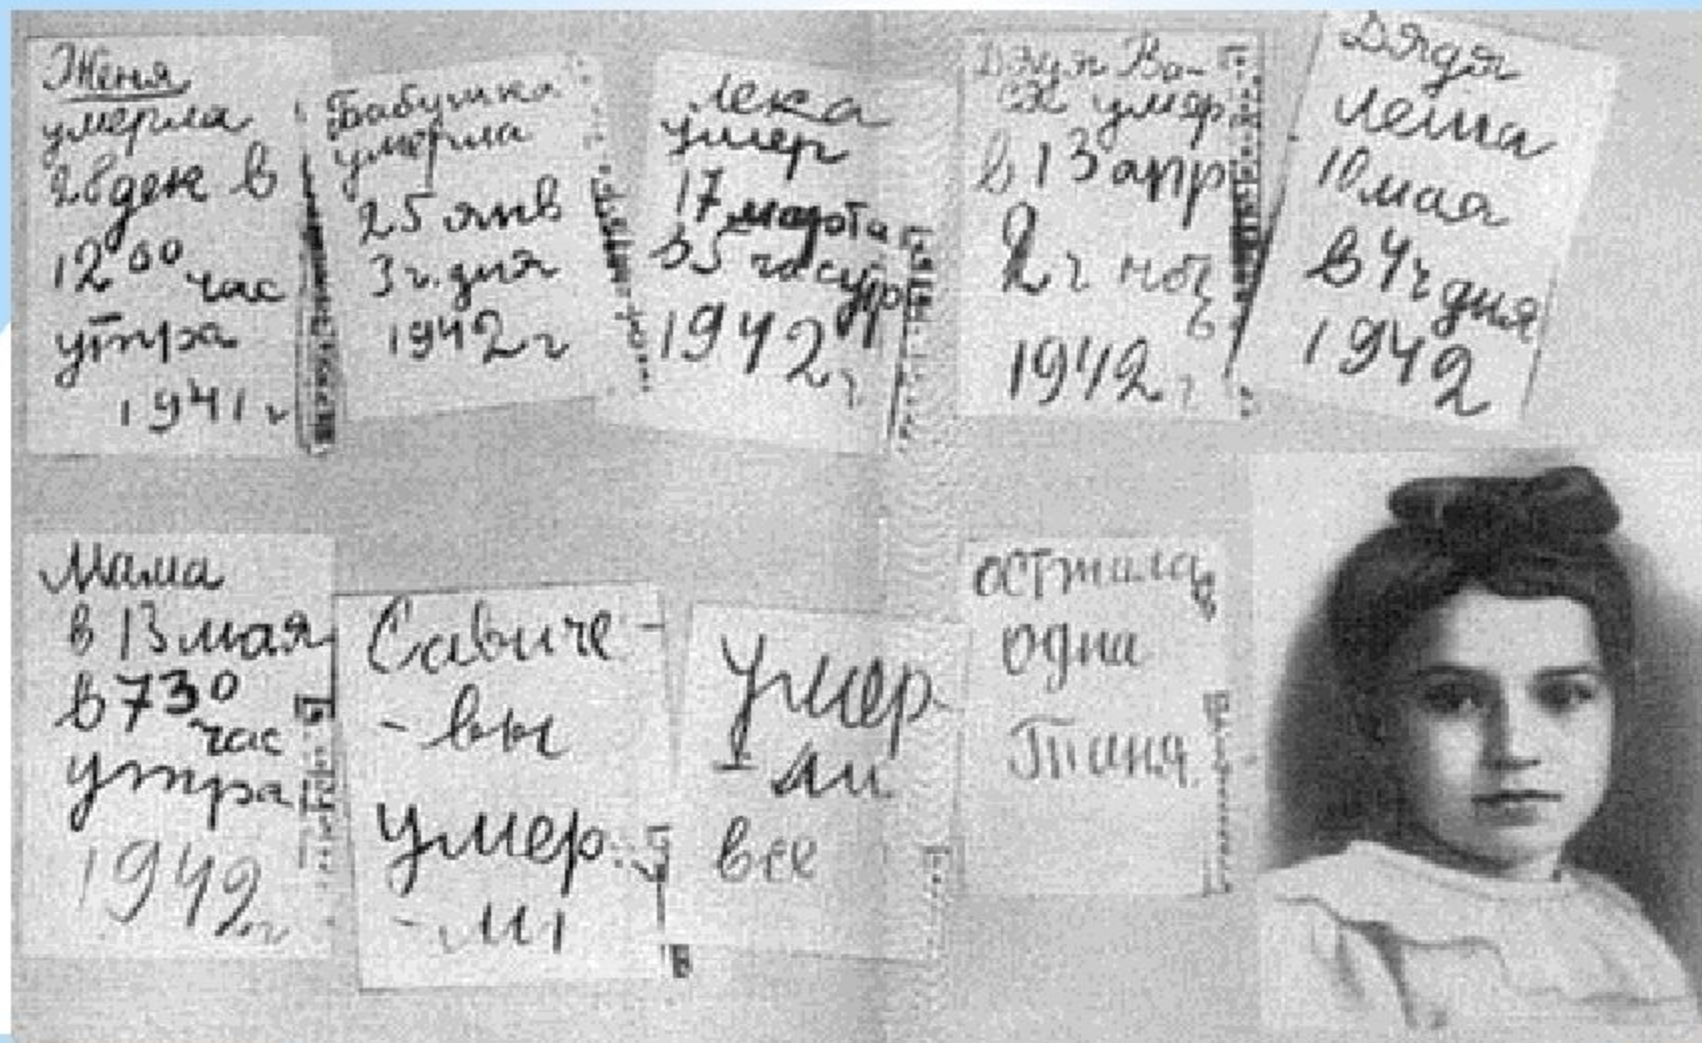 Женя
умерла
28 дек в
12 00 час
утра
1941 г
Бабушка
умерла
25 янв
3 ч. дня
1942 г
Лека
умер
17 марта
в 5 час утр
1942 г
Дядя Ва-
ся умер
в 13 апр
2 ч ноч
1942 г
Дядя
Леша
10 мая
в 4 ч дня
1942
Мама
в 13 мая
в 7 30
час
утра
1942 г
Савиче-
- вы
умер
- ли
Умер
- ли
все
осталась
одна
Таня